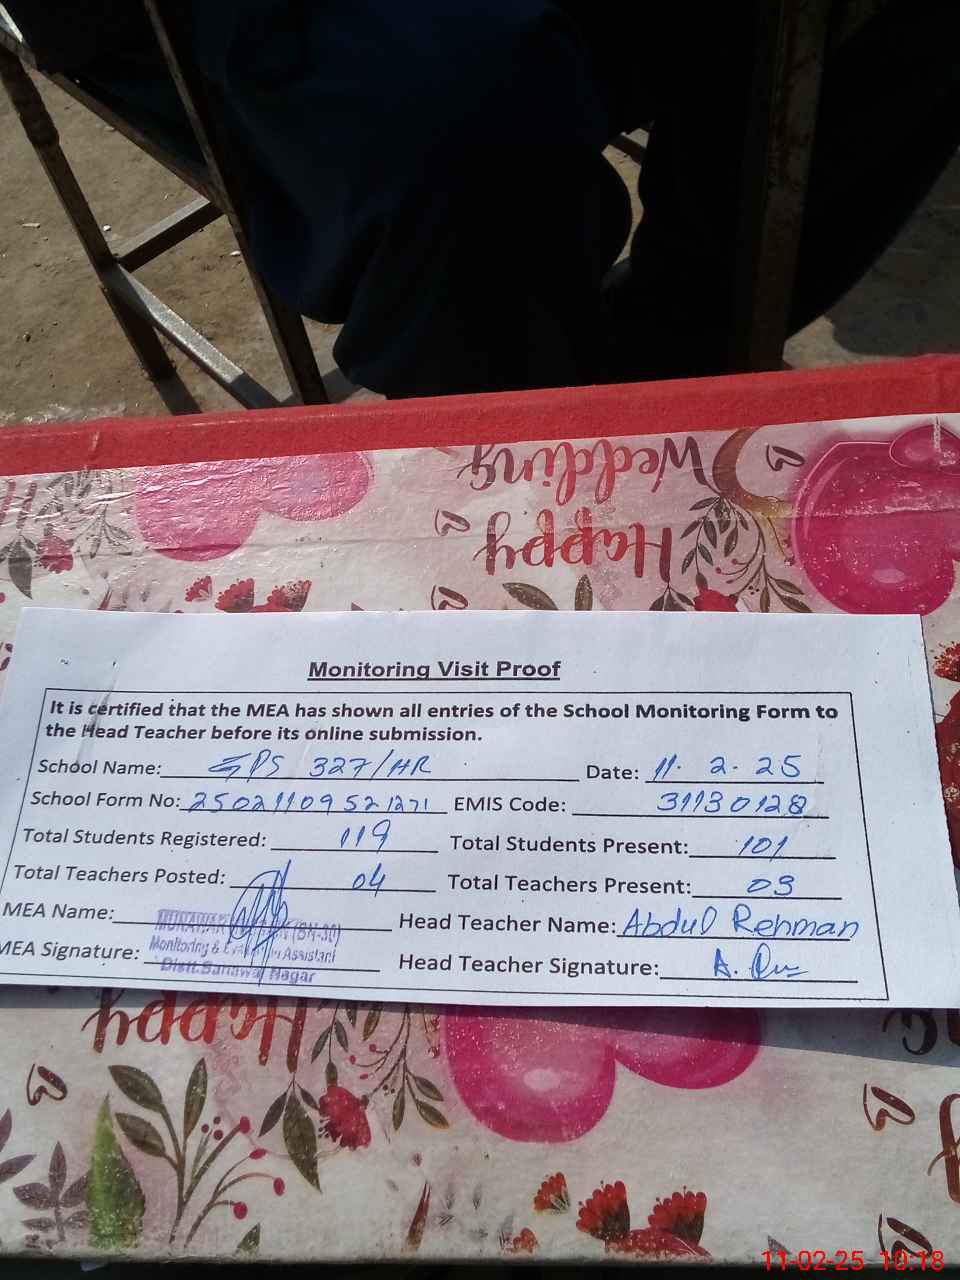 Wedding
Happy
Monitoring Visit Proof
It is certified that the MEA has shown all entries of the School Monitoring Form to
the Head Teacher before its online submission.
School Name: GPS 327/HR Date: 11. 2. 25
School Form No: 25021109521271 EMIS Code: 31130128
Total Students Registered: 119 Total Students Present: 101
Total Teachers Posted: 04 Total Teachers Present: 03
MEA Name: Head Teacher Name: Abdul Rehman
MEA Signature: Monitoring & Evaluation Assistant Head Teacher Signature:
Distt. Bahawal Nagar
Happy
11-02-25 10:18